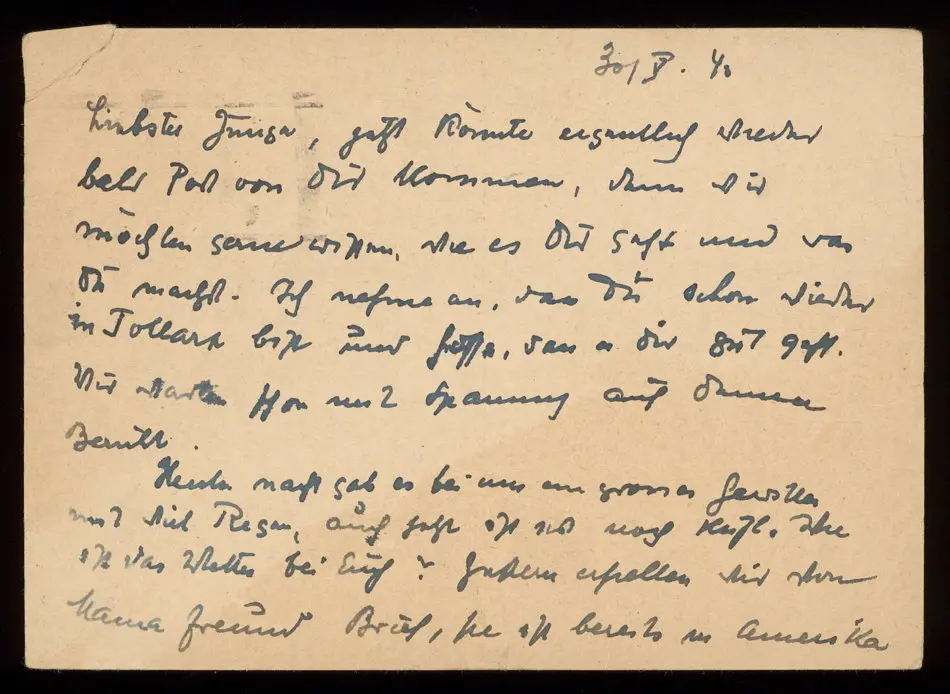 30/V. 40
Liebster Junge, jetzt könnte eigentlich wieder
bald Post von Dir kommen, denn wir
möchten gerne wissen, wie es Dir geht und was
Du machst. Ich nehme an, dass Du schon wieder
in bist und hoffe, dass es dir gut geht.
Wir warten schon mit Spannung auf Deinen
Bericht.
Heute nacht gab es bei uns ein grosses Gewitter
mit viel Regen, auch jetzt ist es noch kühl. Wie
ist das Wetter bei Euch? Gestern erhielten wir von
Mama Freund Brief, sie ist bereits in Amerika